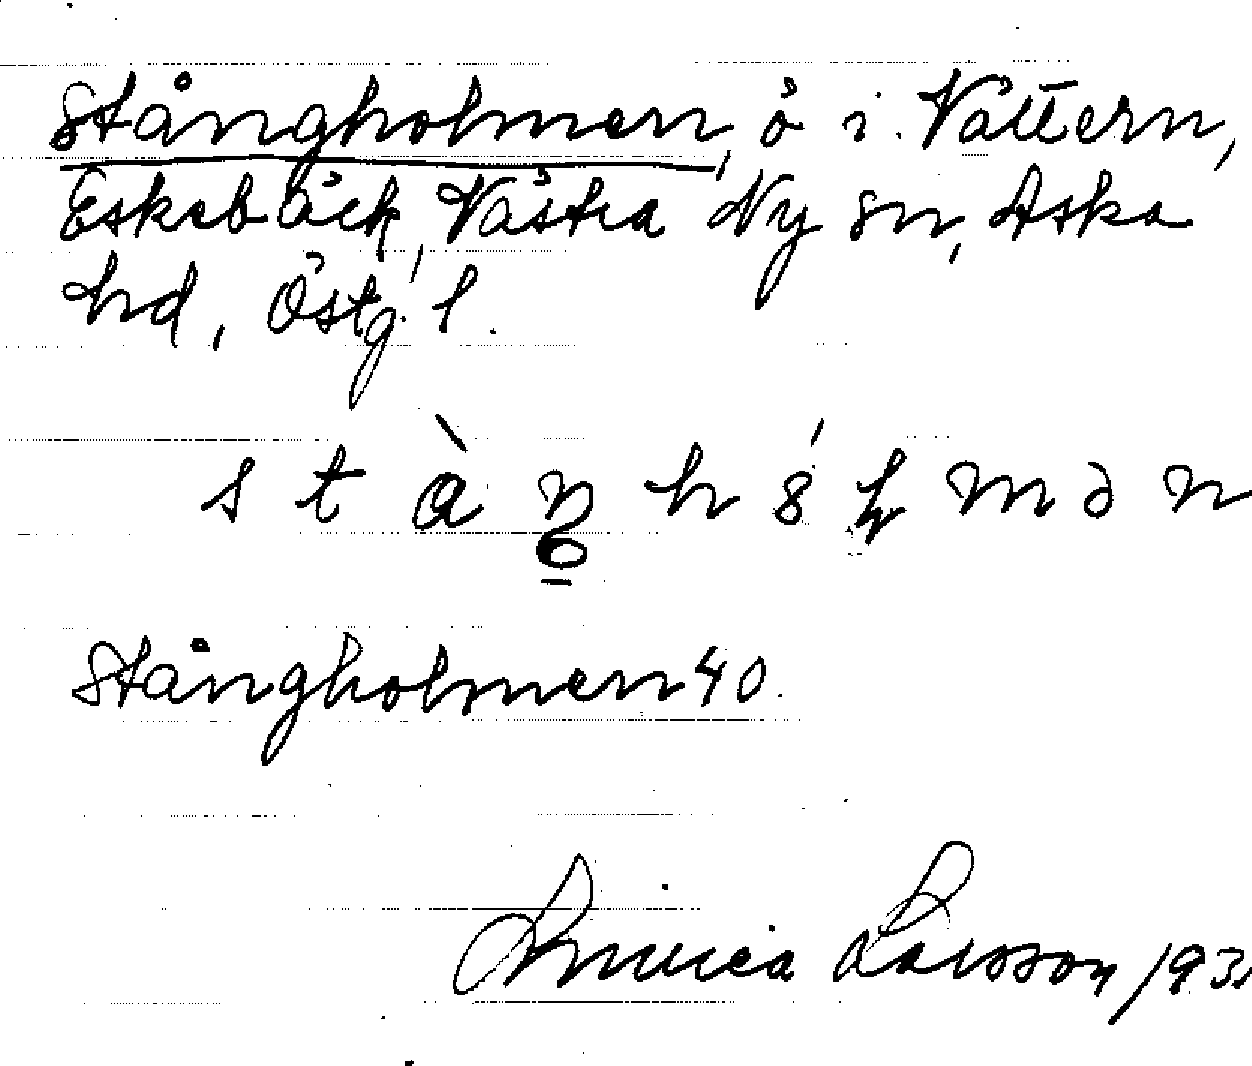 Stångholmen, ö i Vättern,
Eskebäck, Västra Ny sn, Aska
hd, Östg. l.
s t à ŋ h ó l m ə n
Stångholmen 40.
Larsson 193